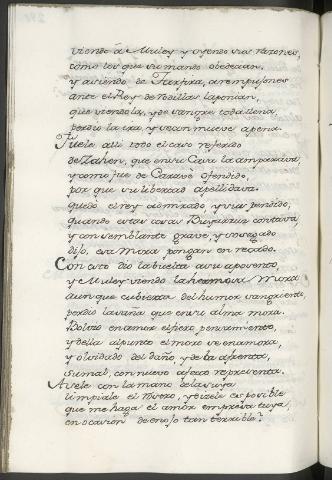 viendo á Muley y oyendo sus razones,
como los que su mando obedecian,
y asiendo de Jarifa, a rempujones
ante el Rey de rodillas la ponian,
que viendola, y de sangre toda llena,
perdio la ira, y ya con nueve a pena.
Fuele alli todo el caso referido
de Zahen, que en su Casa la amparava,
y como fue de ofendido,
por que su libertad apellidava.
quedó el rey admirado, y suspendido,
quando estas cosas contava,
y con semblante grave, y sosegado
dijo, esa Mora pongan en recado.
Con esto dio la buelta a su aposento,
y Muley viendo la hermosa Mora
aunque cubierta del humor sangriento,
perdio la saña que en su alma mora.
Bolvio en amor el fiero pensamiento,
y della al punto el moro se enamora,
y olvidado del daño, y de la afrenta,
su mal, con nuevo afecto representa.
Asiele con la mano de la suya
limpiale el rostro, y dizele es posible
que me haga el amor empresa tuya,
en ocasion de enojo tan terrible?